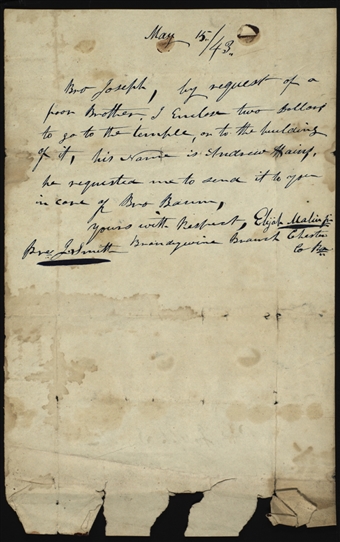 May 15/43.
Bro Joseph, by request of a
poor Brother. I Enclose two Dollars
to go to the temple, or to the building
of it, his Name is Andrew Hains,
he requested me to send it to you
in care of Bro Baum,
yours with Respect, Elijah Malin Jr
Bro J. Smith Brandywine Branch Chester
Co Pa